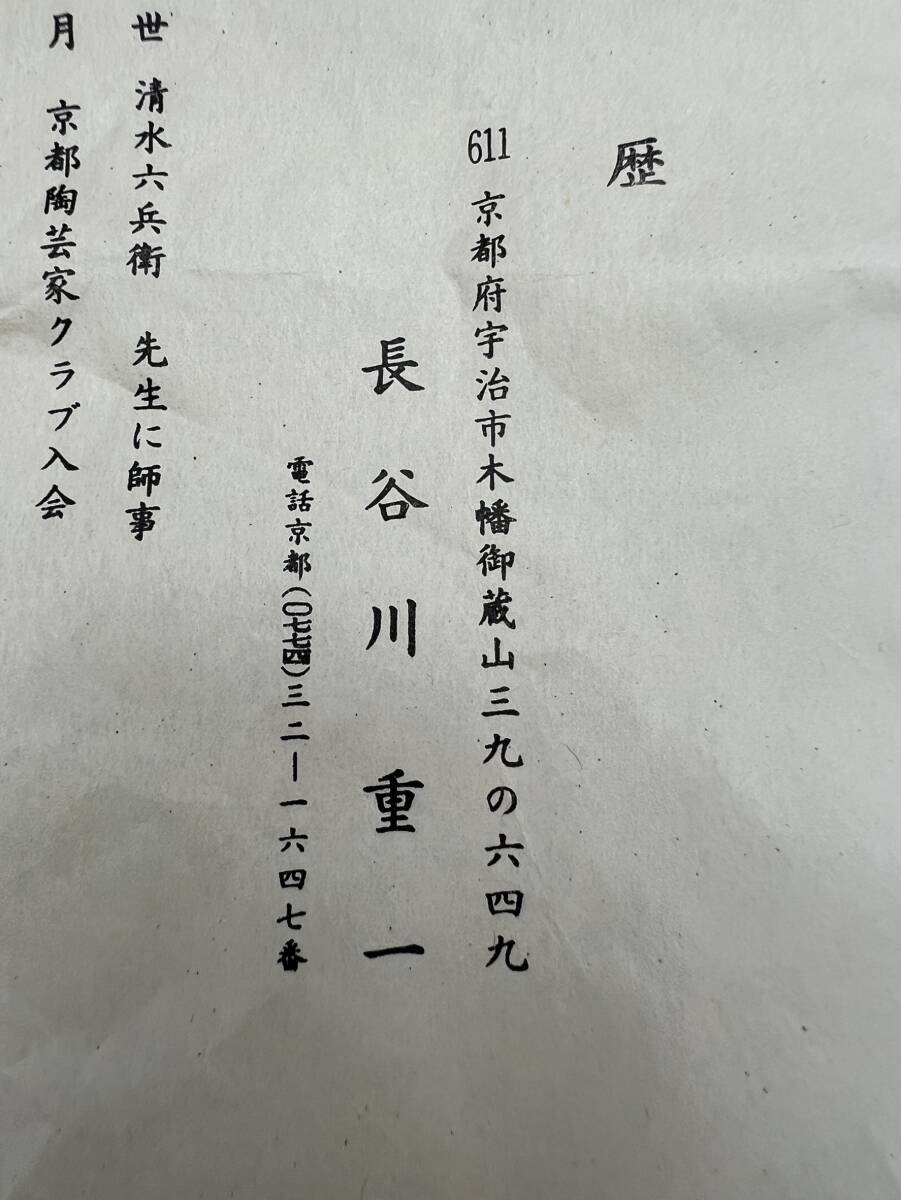 歴
611 京都府宇治市木幡御蔵山三九の六四九
長谷川重一
電話京都(〇七七四)三二―一六四七番
世 清水六兵衛 先生に師事
月 京都陶芸家クラブ入会